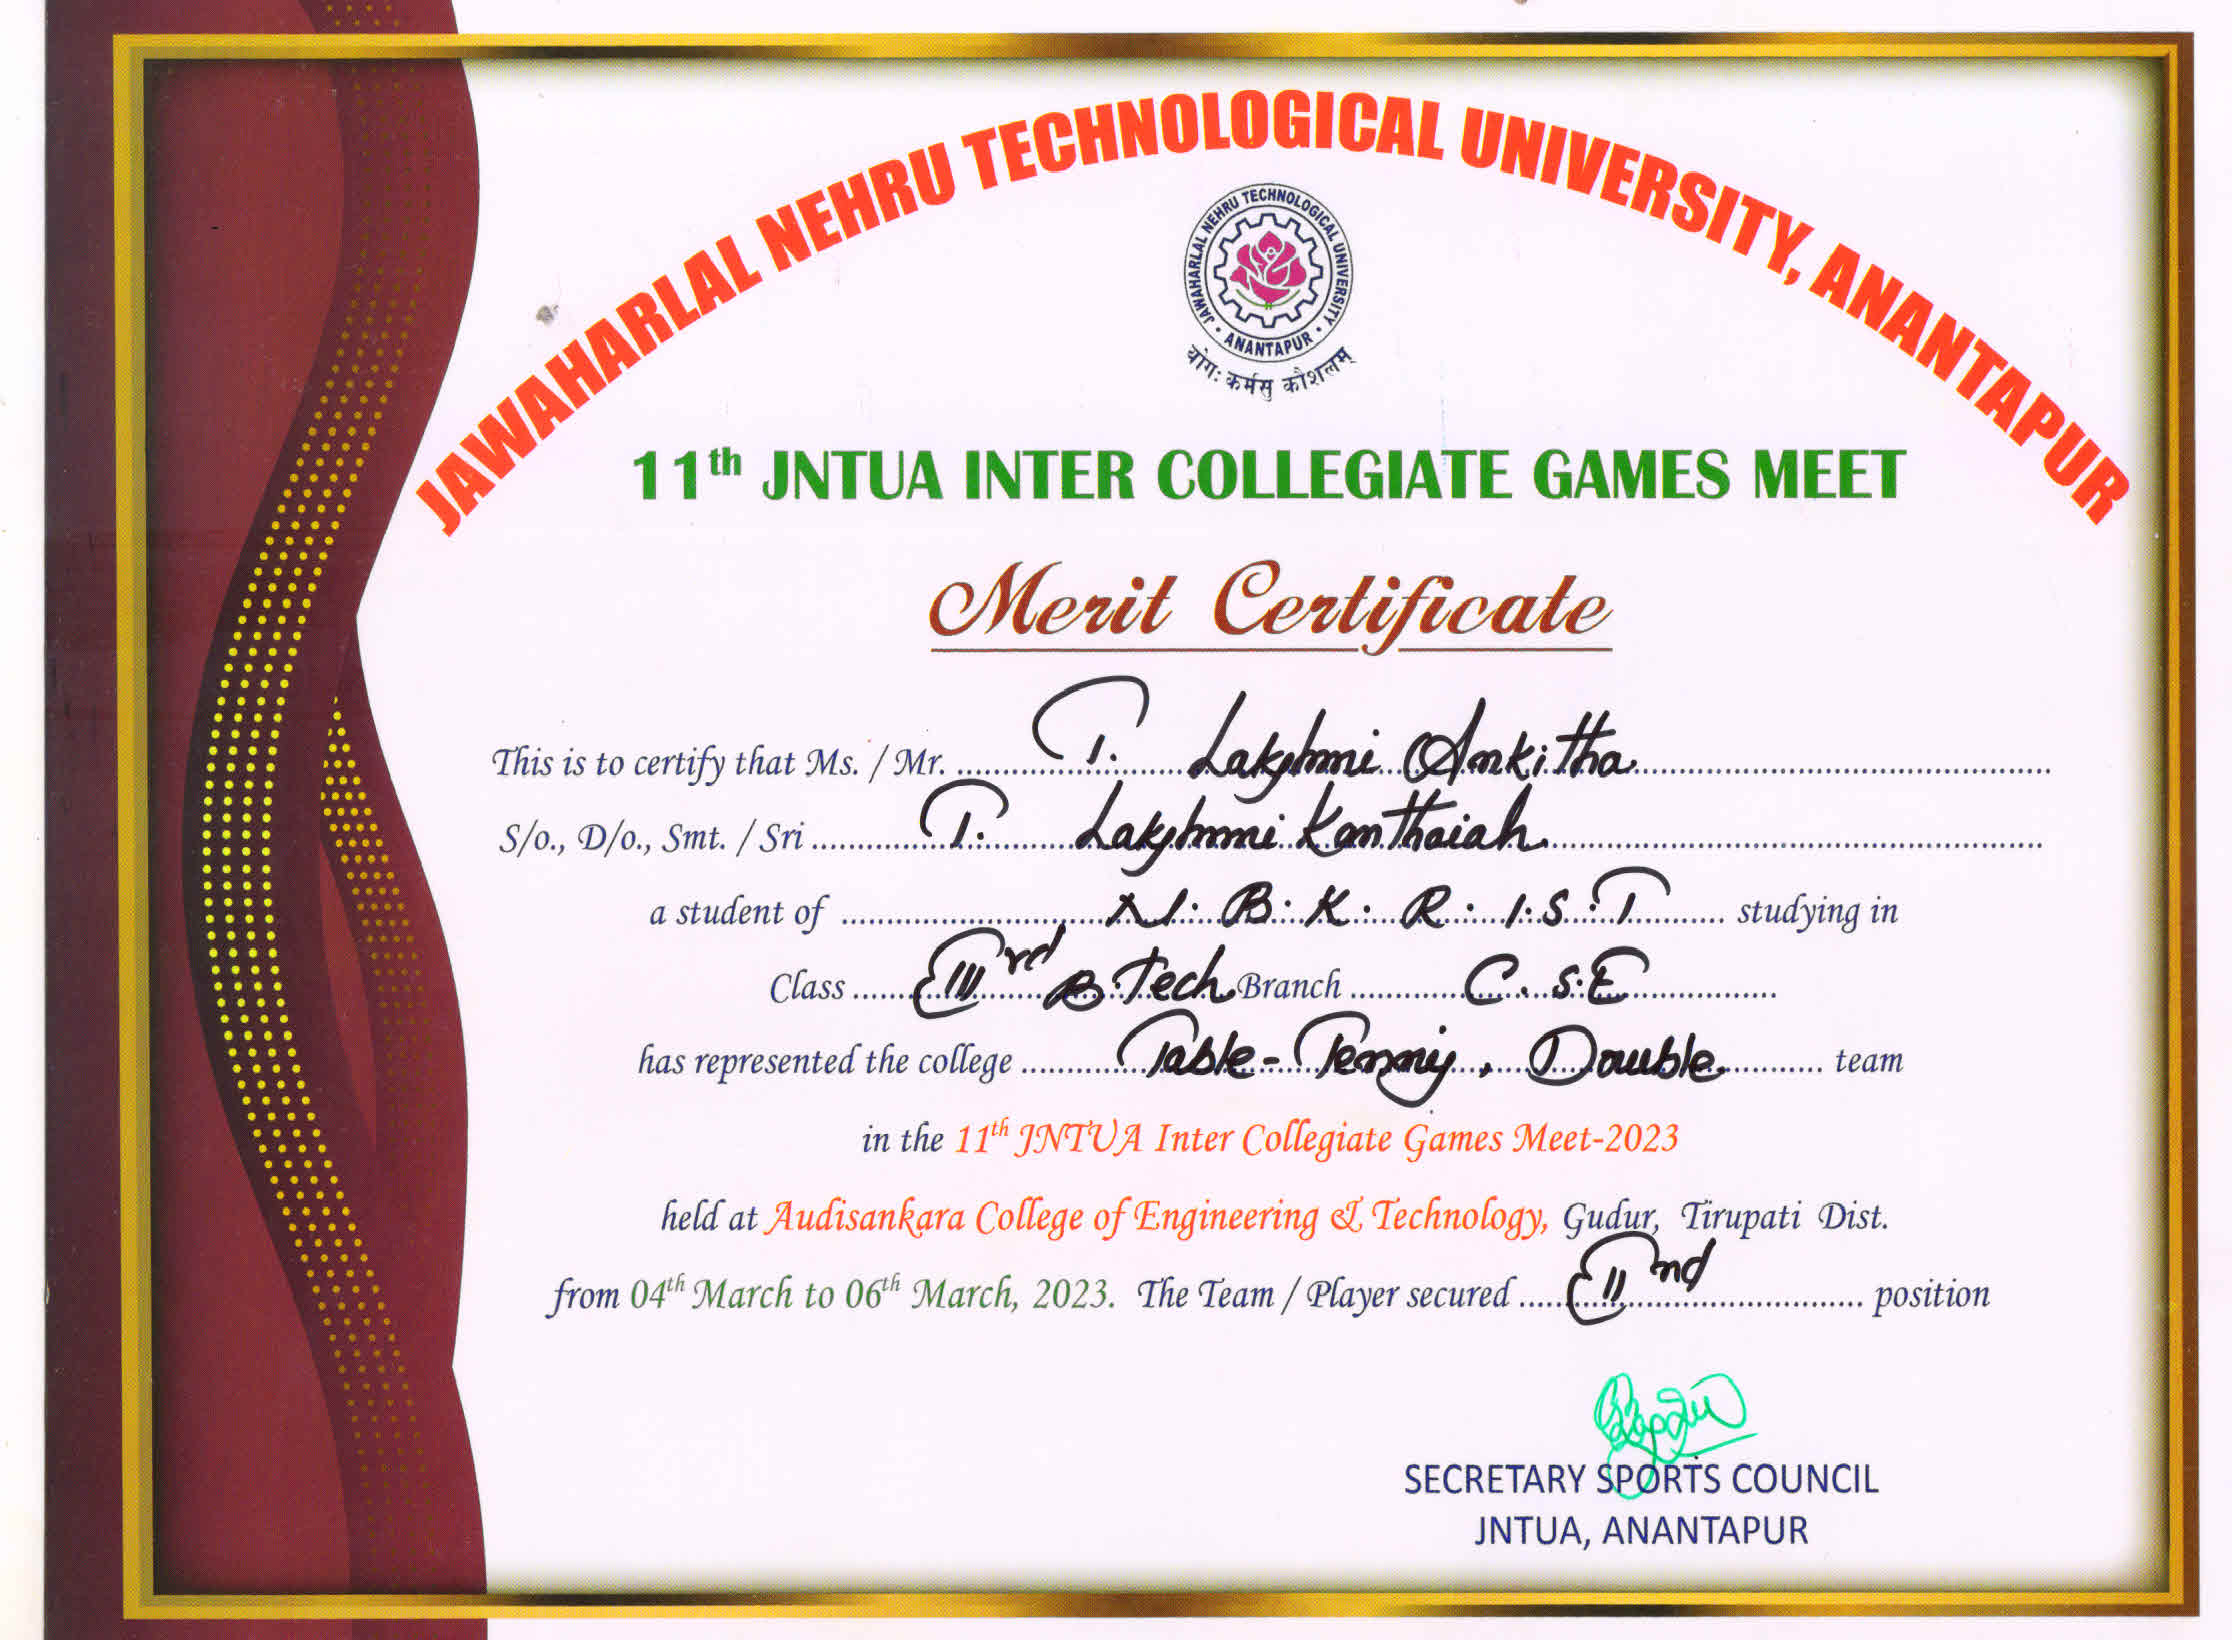 JAWAHARLAL NEHRU TECHNOLOGICAL UNIVERSITY, ANANTAPUR
JAWAHARLAL NEHRU TECHNOLOGICAL UNIVERSITY
• ANANTAPUR •
योगः कर्मसु कौशलम्
11th JNTUA INTER COLLEGIATE GAMES MEET
Merit Certificate
This is to certify that Ms. / Mr. T. Lakshmi Ankitha
S/o., D/o., Smt. / Sri T. Lakshmi Kanthaiah
a student of N.B.K.R.I.S.T studying in
Class III rd B.Tech Branch C.S.E
has represented the college Table-Tennis, Double team
in the 11th JNTUA Inter Collegiate Games Meet-2023
held at Audisankara College of Engineering & Technology, Gudur, Tirupati Dist.
from 04th March to 06th March, 2023. The Team / Player secured II nd position
SECRETARY SPORTS COUNCIL
JNTUA, ANANTAPUR